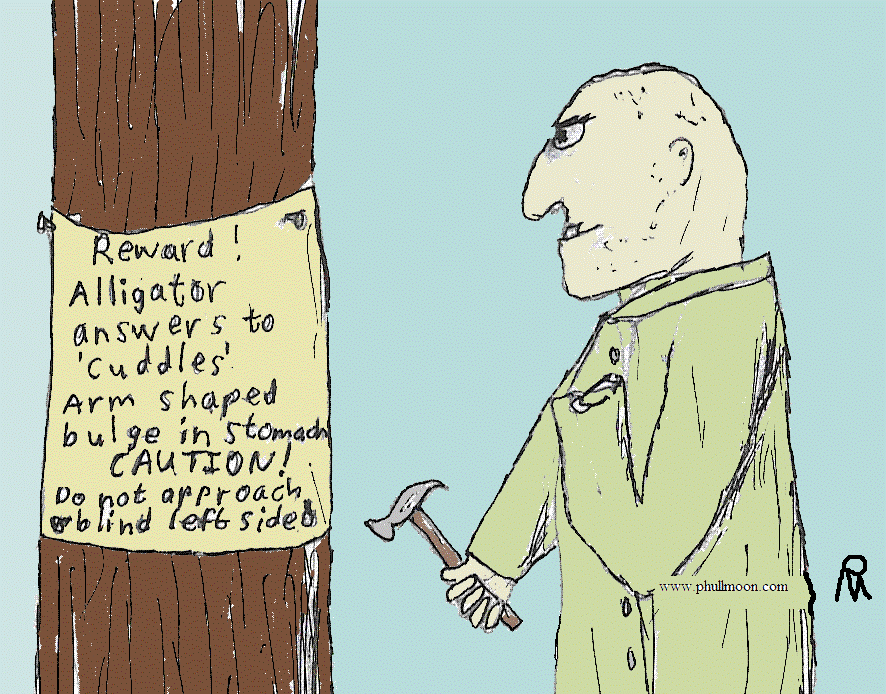 Reward!
Alligator
answers to
'Cuddles'
Arm shaped
bulge in stomach
CAUTION!
Do not approach
blind left sided
www.phullmoon.com